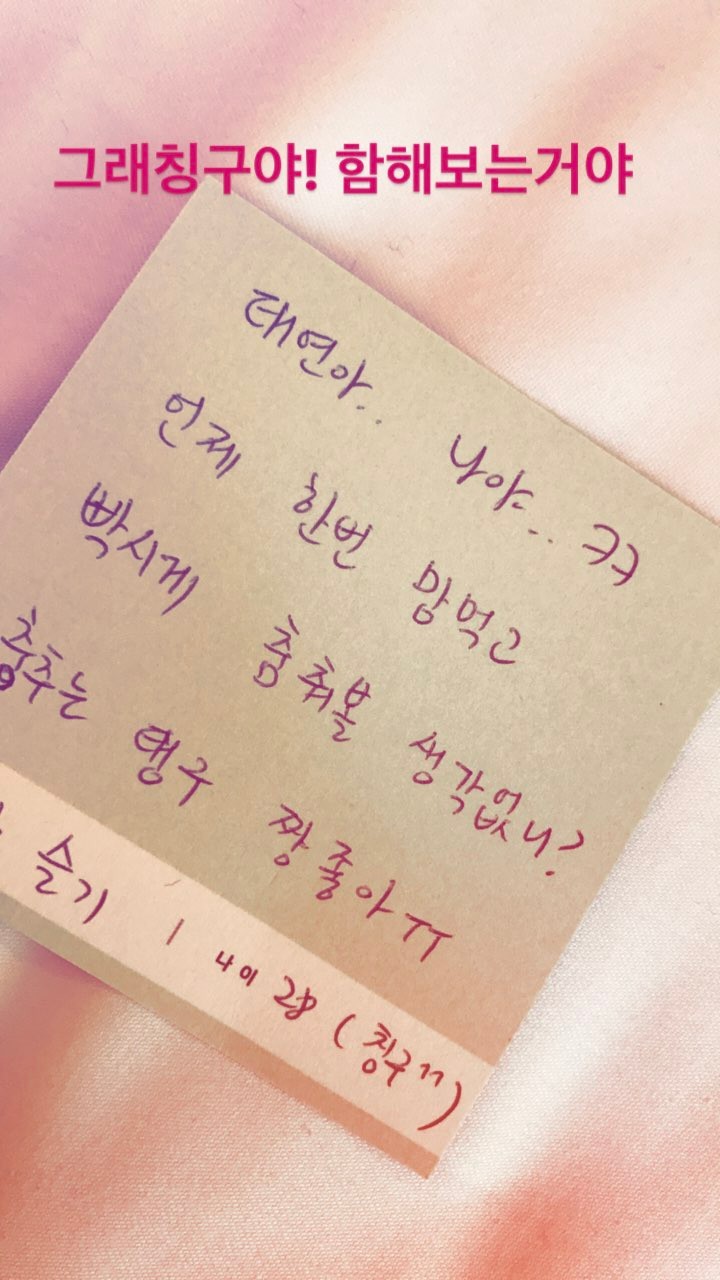 그래칭구야! 함해보는거야
태연아.. 나야.. ㅋㅋ
언제 한번 맘먹고
빡시게 춤춰볼 생각없니?
춤추는 탱구 짱 좋아ㅠㅠ
슬기 | 나이 28 (칭구ㄲ)